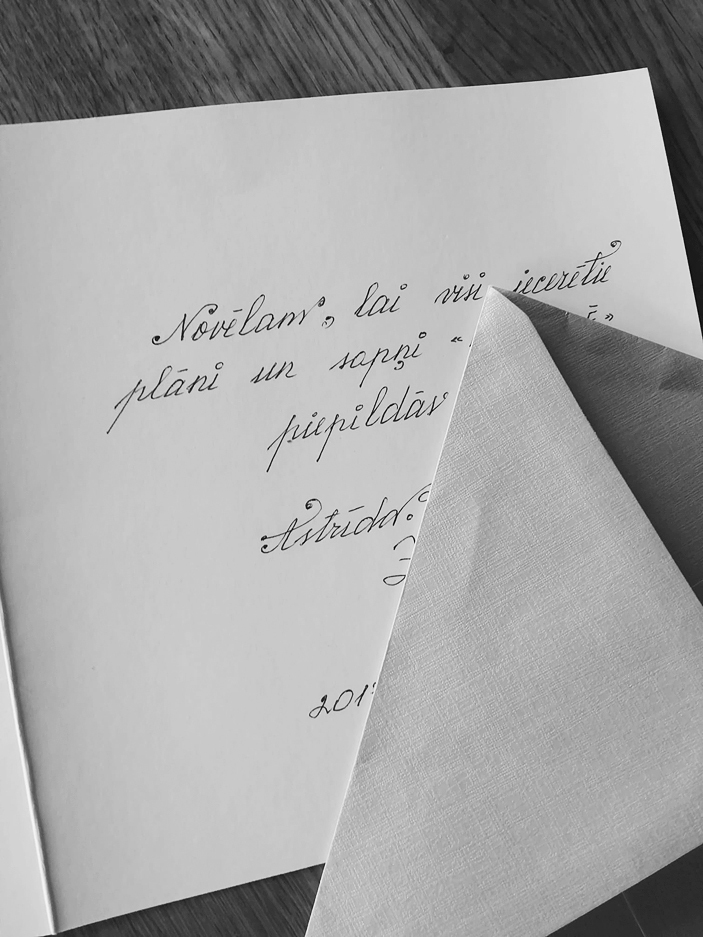 Novēlam, lai visi iecerētie
plāni un sapņi
piepildās
Astrīda
201